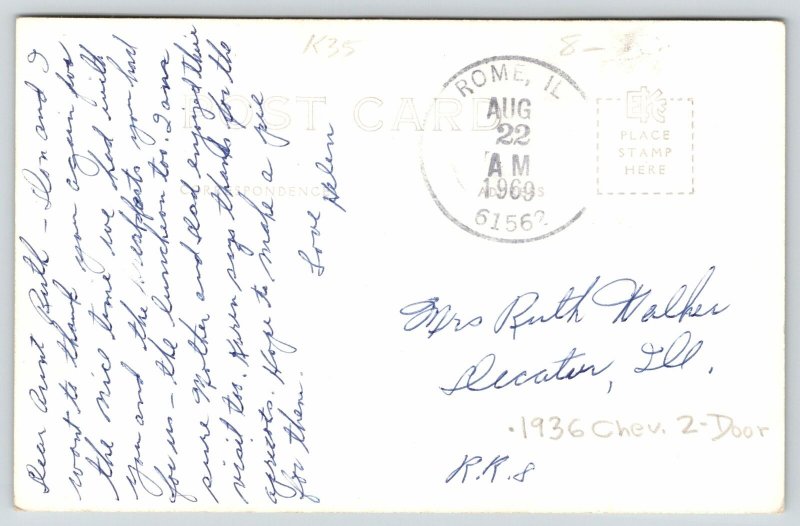 Dear Aunt Ruth - Don and I
want to thank you again for
the nice time we had with
you and the you had
for us - the luncheon too. I am
sure Mother and dad enjoyed their
visit too. Karen says thanks for the
apricots. Hope to make a pie
for them.
Love Helen
K35
8-
POST CARD
CORRESPONDENCE
ADDRESS
ROME, IL
AUG
22
AM
1969
61562
EKC
PLACE
STAMP
HERE
Mrs Ruth Walker
Decatur, Ill.
.1936 Chev. 2-Door
R.R.8